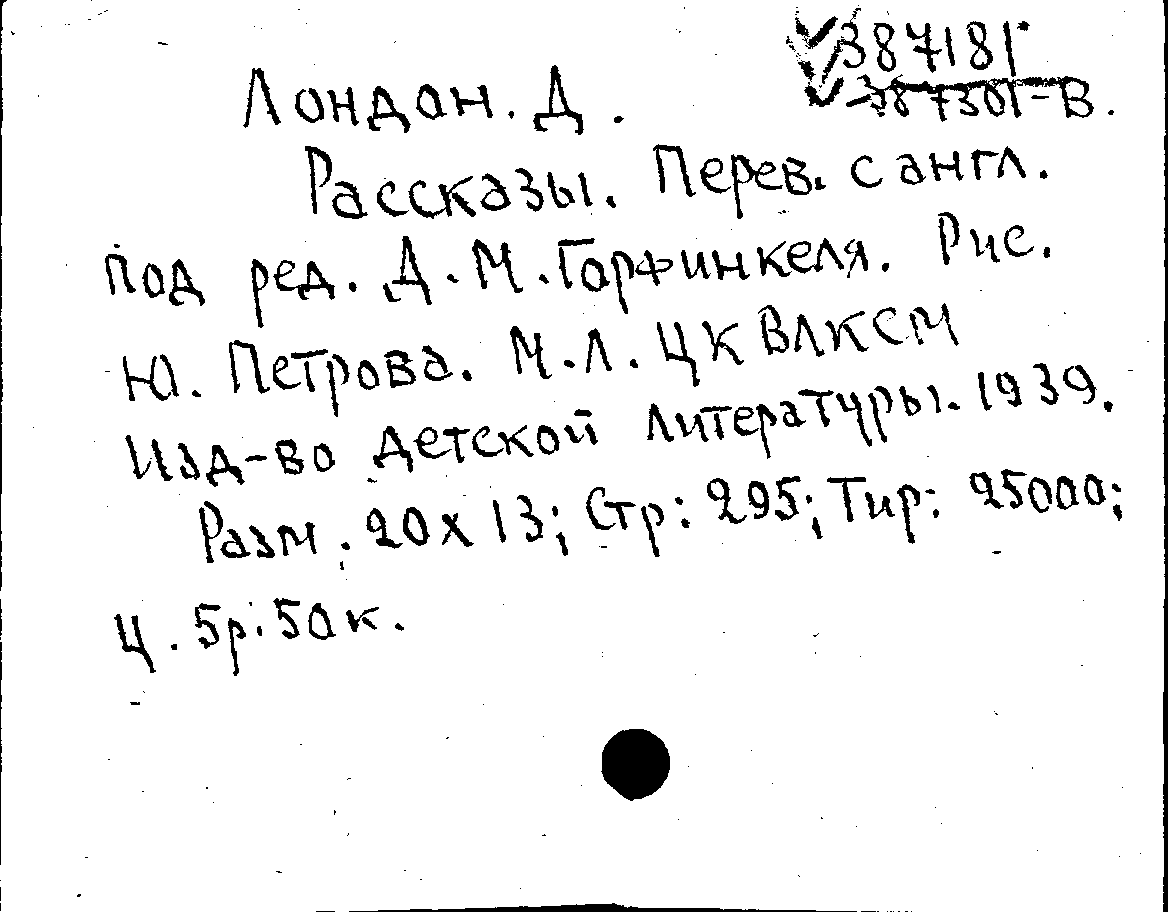 387181
Лондон. Д.
387301-В.
Рассказы. Перев. с англ.
под ред. Д. М. Горфинкеля. Рис.
Ю. Петрова. М.Л. ЦК ВЛКСМ
Изд-во детской литературы. 1939.
Разм. 20х13; Стр: 295; Тир: 25000;
Ц. 5р. 50к.